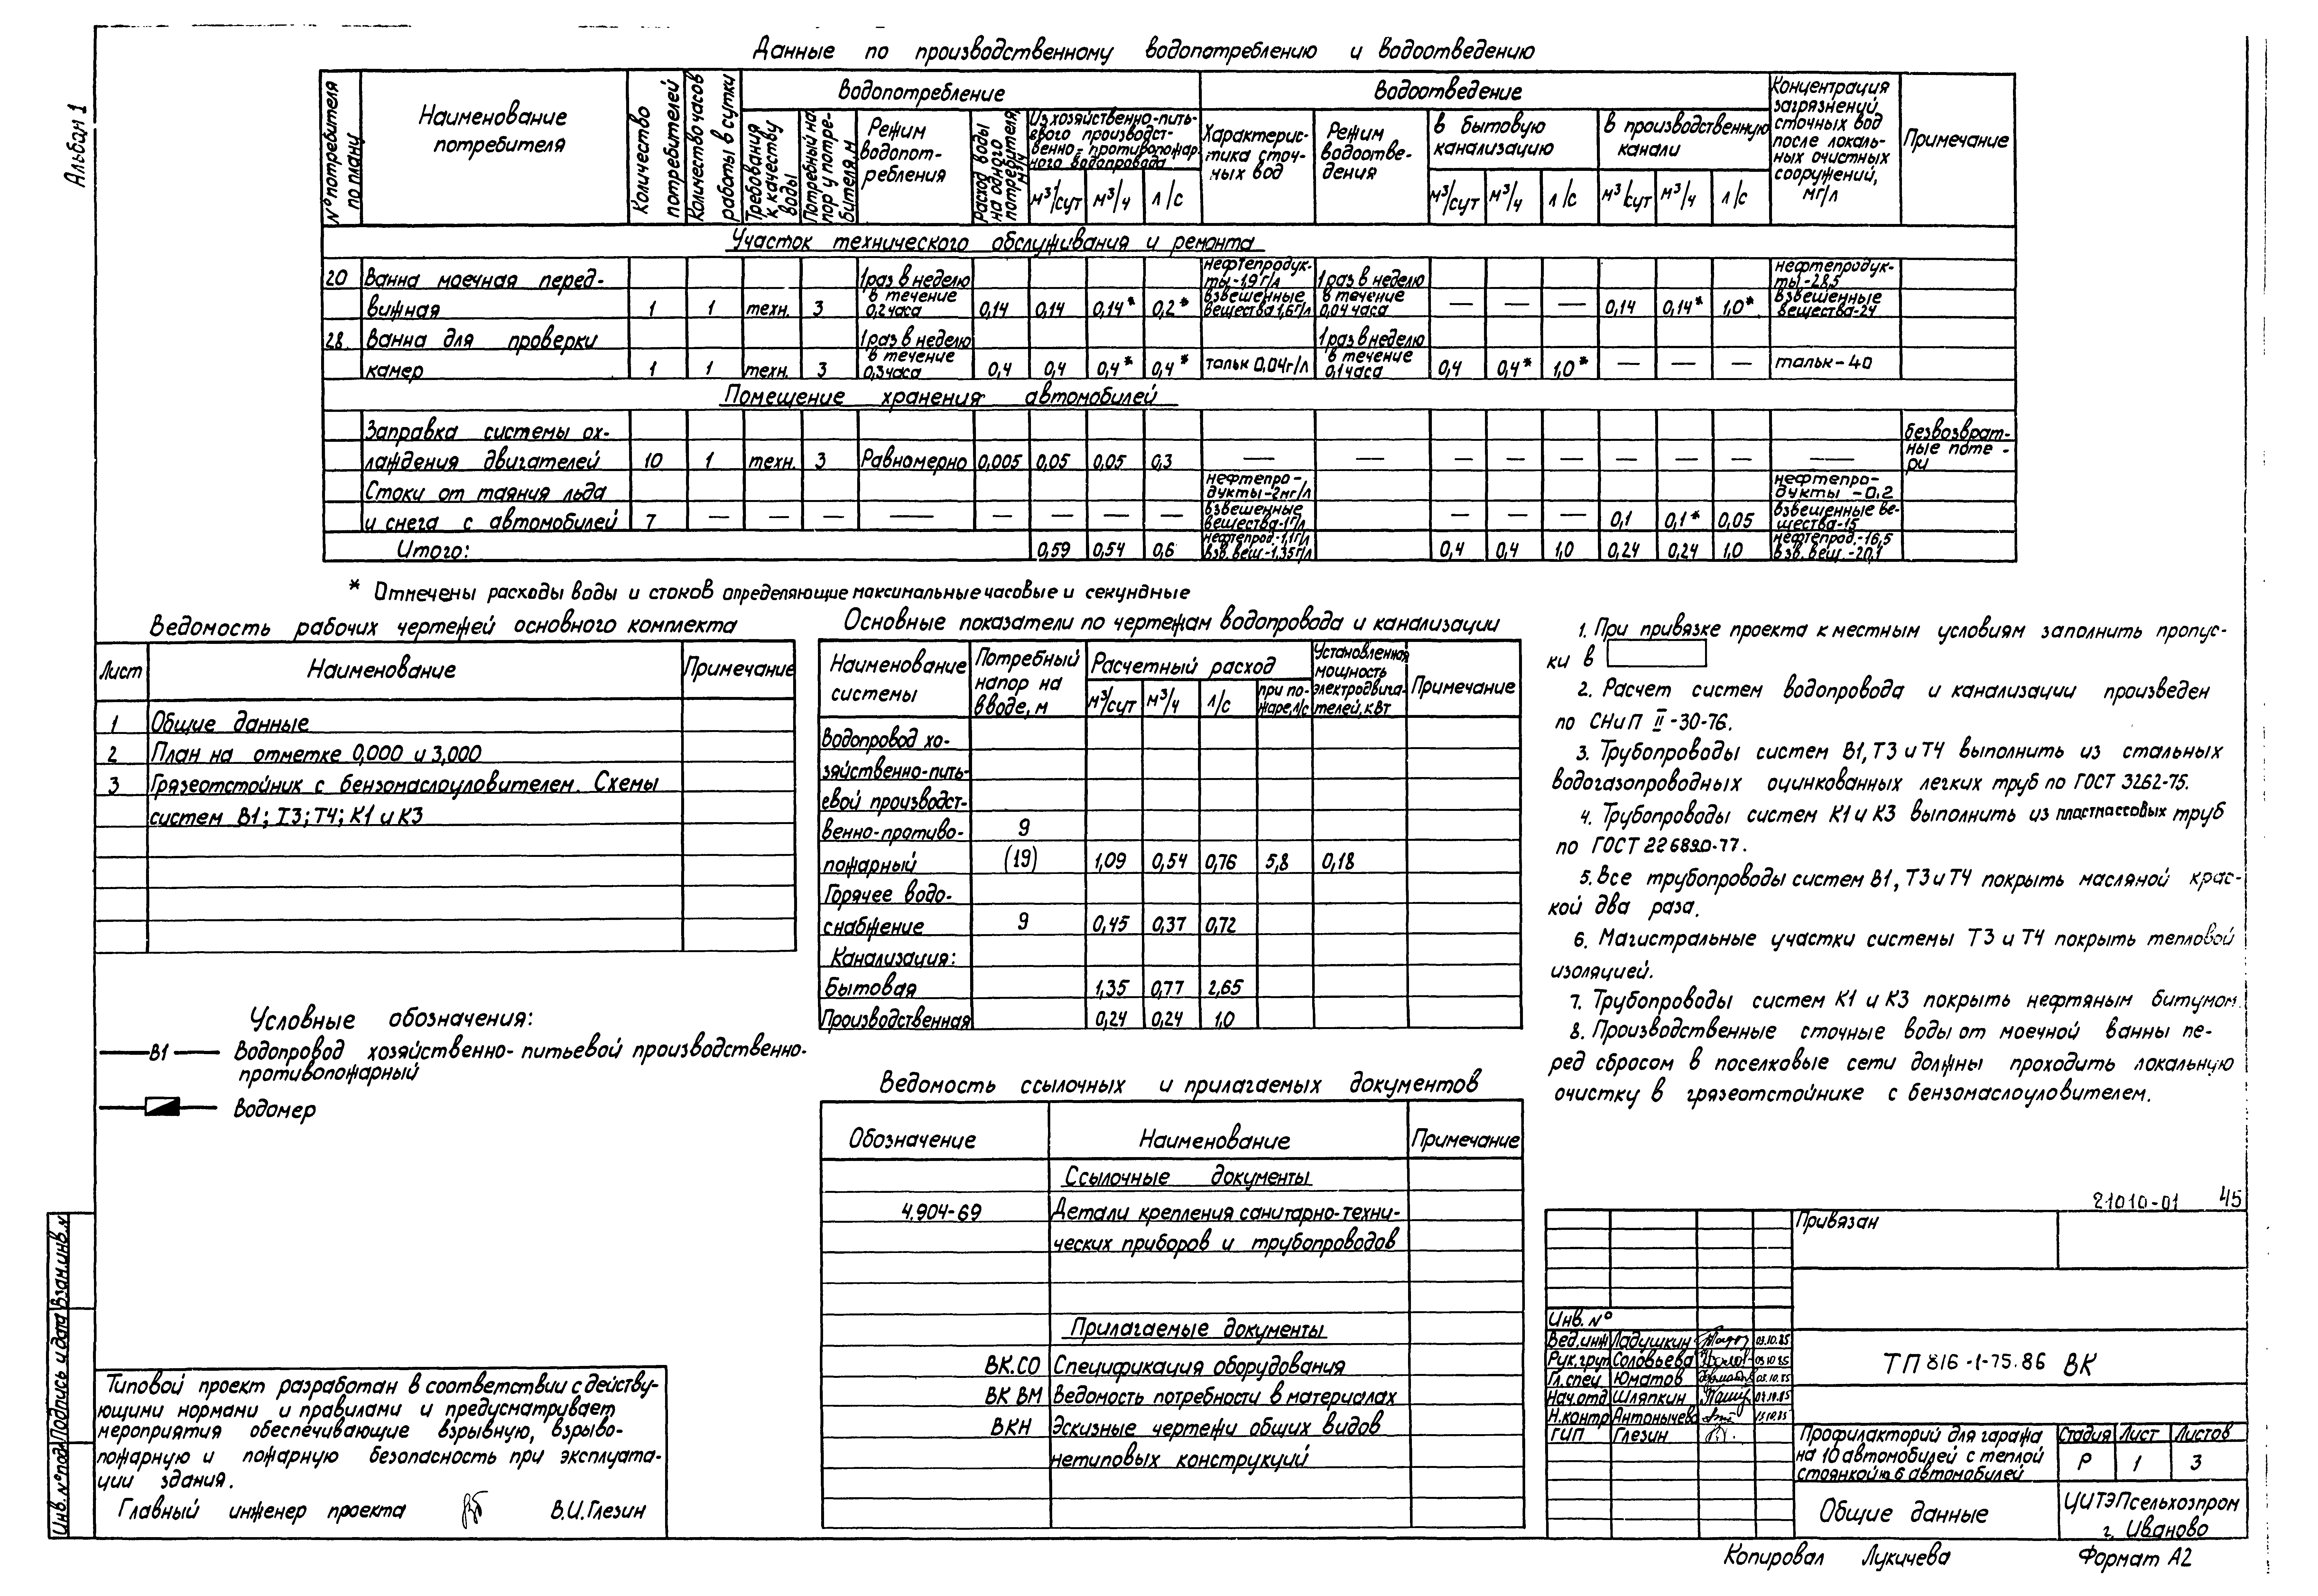 Альбом 1
Данные по производственному водопотреблению и водоотведению
№ потребителя по плану
Наименование потребителя
Количество потребителей
Количество часов работы в сутки
Водопотребление
Требования к качеству воды
Потребный напор у потребителя, м
Режим водопотребления
Расход воды на одного потребителя, м³/ч
Из хозяйственно-питьевого производственно-противопожарного водопровода
м³/сут м³/ч л/с
Водоотведение
Характеристика сточных вод
Режим водоотведения
в бытовую канализацию
м³/сут м³/ч л/с
в производственную канали
м³/сут м³/ч л/с
Концентрация загрязнений сточных вод после локальных очистных сооружений, мг/л
Примечание
Участок технического обслуживания и ремонта
20 Ванна моечная передвижная 1 1 техн. 3 1 раз в неделю в течение 0,2 часа 0,14 0,14 0,14* 0,2* нефтепродукты-1,9 г/л взвешенные вещества 1,6 г/л 1 раз в неделю в течение 0,04 часа — — — 0,14 0,14* 1,0* нефтепродукты-28,5 взвешенные вещества-24
28. Ванна для проверки камер 1 1 техн. 3 1 раз в неделю в течение 0,3 часа 0,4 0,4 0,4* 0,4* тальк 0,04 г/л 1 раз в неделю в течение 0,1 часа 0,4 0,4* 1,0* — — — тальк-40
Помещение хранения автомобилей
Заправка системы охлаждения двигателей 10 1 техн. 3 Равномерно 0,005 0,05 0,05 0,3 — — — — — — — — — безвозвратные потери
Стоки от таяния льда и снега с автомобилей 7 — — — — — — — — нефтепродукты-2мг/л взвешенные вещества-1г/л — — — 0,1 0,1* 0,05 нефтепродукты-0,2 взвешенные вещества-15
Итого: 0,59 0,54 0,6 нефтепрод.-1,1г/л взв. вещ.-1,35г/л 0,4 0,4 1,0 0,24 0,24 1,0 нефтепрод.-16,5 взв. вещ.-20,1
* Отмечены расходы воды и стоков определяющие максимальные часовые и секундные
Ведомость рабочих чертежей основного комплекта
Лист Наименование Примечание
1 Общие данные
2 План на отметке 0,000 и 3,000
3 Грязеотстойник с бензомаслоуловителем. Схемы
систем В1; Т3; Т4; К1 и К3
Условные обозначения:
В1 Водопровод хозяйственно-питьевой производственно-
противопожарный
Водомер
Типовой проект разработан в соответствии с действу-
ющими нормами и правилами и предусматривает
мероприятия обеспечивающие взрывную, взрыво-
пожарную и пожарную безопасность при эксплуата-
ции здания.
Главный инженер проекта В.И.Глезин
Взам.инв.№
Подпись и дата
Инв.№ подл.
Основные показатели по чертежам водопровода и канализации
Наименование системы
Потребный напор на вводе, м
Расчетный расход
м³/сут м³/ч л/с при пожаре, л/с
Установленная мощность электродвигателей, кВт
Примечание
Водопровод хо-
зяйственно-пить-
евой производст-
венно-противо- 9
пожарный (19) 1,09 0,54 0,76 5,8 0,18
Горячее водо-
снабжение 9 0,45 0,37 0,72
Канализация:
Бытовая 1,35 0,77 2,65
Производственная 0,24 0,24 1,0
Ведомость ссылочных и прилагаемых документов
Обозначение Наименование Примечание
Ссылочные документы
4.904-69 Детали крепления санитарно-техни-
ческих приборов и трубопроводов
Прилагаемые документы
ВК.СО Спецификация оборудования
ВК ВМ Ведомость потребности в материалах
ВКН Эскизные чертежи общих видов
нетиповых конструкций
1. При привязке проекта к местным условиям заполнить пропус-
ки в
2. Расчет систем водопровода и канализации произведен
по СНиП II-30-76.
3. Трубопроводы систем В1, Т3 и Т4 выполнить из стальных
водогазопроводных оцинкованных легких труб по ГОСТ 3262-75.
4. Трубопроводы систем К1 и К3 выполнить из пластмассовых труб
по ГОСТ 22689.0-77.
5. Все трубопроводы систем В1, Т3 и Т4 покрыть масляной крас-
кой два раза.
6. Магистральные участки системы Т3 и Т4 покрыть тепловой
изоляцией.
7. Трубопроводы систем К1 и К3 покрыть нефтяным битумом.
8. Производственные сточные воды от моечной ванны пе-
ред сбросом в поселковые сети должны проходить локальную
очистку в грязеотстойнике с бензомаслоуловителем.
21010-01 45
Привязан
Инв. №
Вед.инж Ладушкин 03.10.85
Рук.груп Соловьева 03.10.85
Гл.спец Юматов 03.10.85
Нач.отд Шляпкин 03.10.85
Н.контр Антонычева
ГИП Глезин
ТП 816-1-75.86 ВК
Профилакторий для гаража
на 10 автомобилей с теплой
стоянкой на 6 автомобилей
Стадия Лист Листов
Р 1 3
Общие данные
ЦИТЭПсельхозпром
г. Иваново
Копировал Лукичева Формат А2